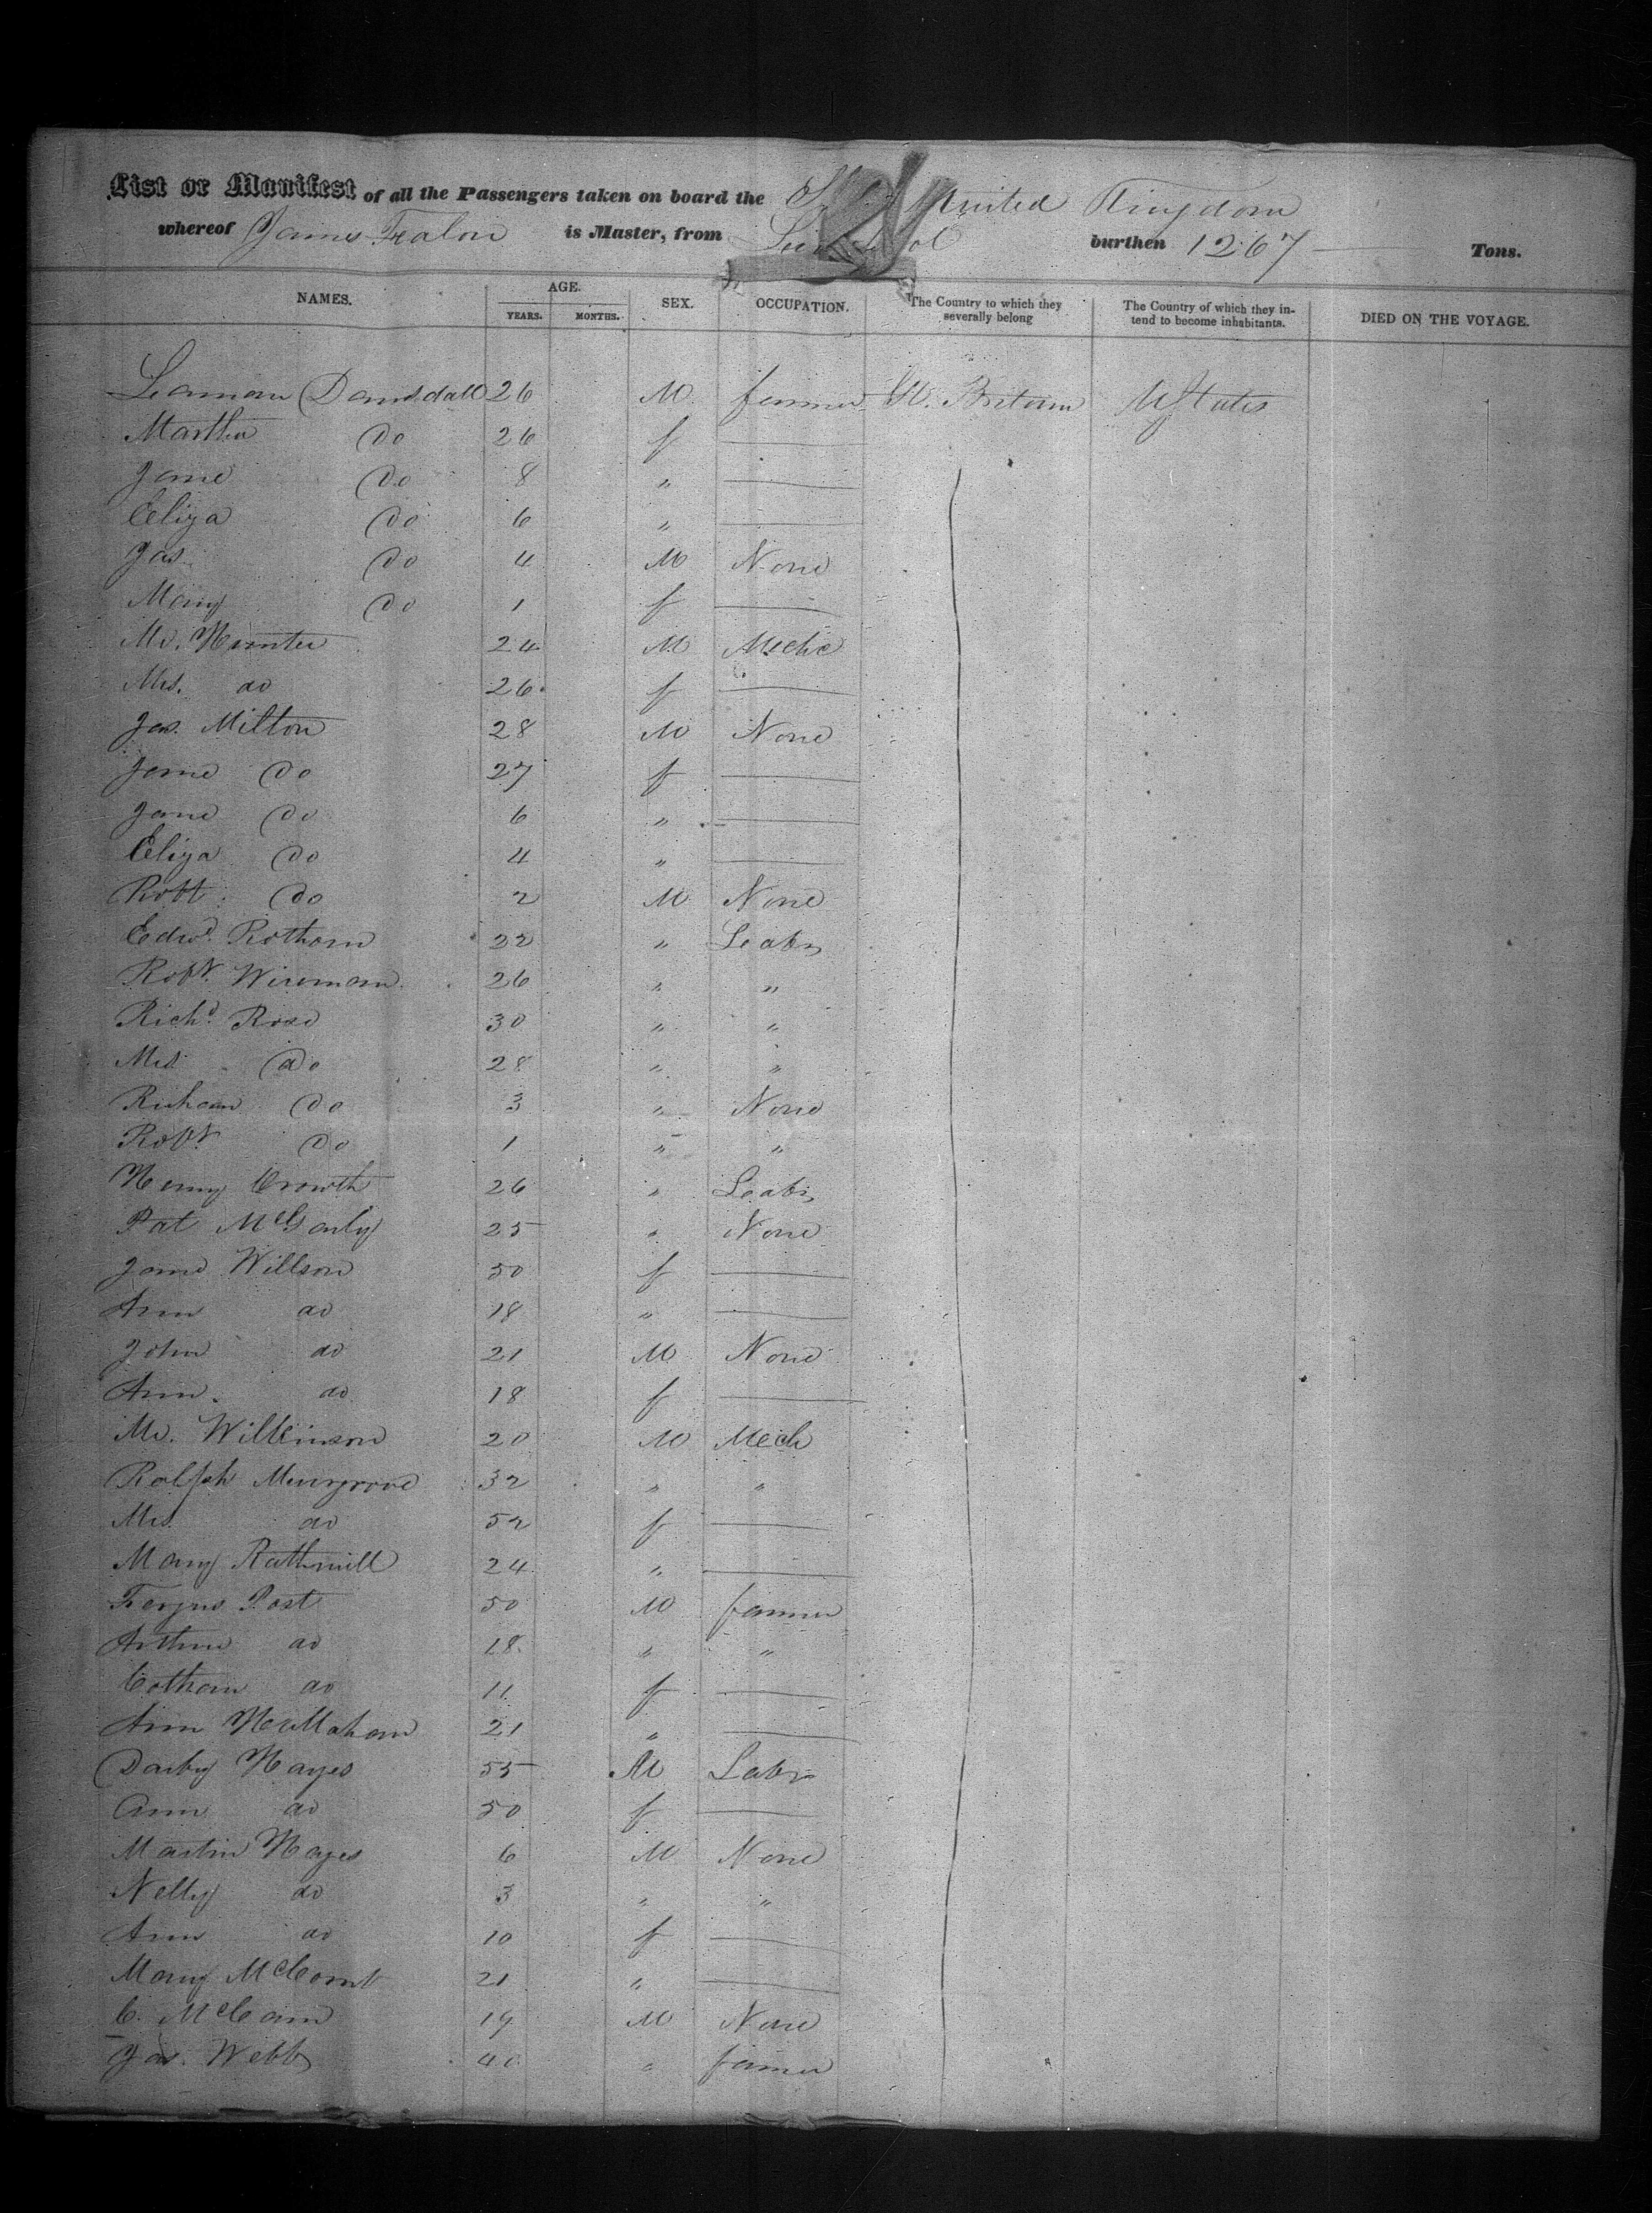 List or Manifest of all the Passengers taken on board the Ship United Kingdom
whereof James Fealon is Master, from burthen 1267 Tons.
NAMES. AGE. YEARS. MONTHS. SEX. OCCUPATION. The Country to which they severally belong The Country of which they intend to become inhabitants. DIED ON THE VOYAGE.
26 M farmer Gt. Britain UStates
Martha Do 26 f
Jane Do 8 "
Eliza Do 6 "
Jas. Do 4 M None
Mary Do 1 f
Mr. Hunter 24 M Mechc
Mrs. do 26 f
Jas. Milton 28 M None
Jane Do 27 f
Jane Do 6 "
Eliza Do 4 "
Robt. Do 2 M None
Edwd. Rotham 22 " Labr
Robt. Wiseman 26 " "
Richd. Rose 30 " "
Mrs Do 28 " "
Do 3 " None
Robt. Do 1 " "
Henry Crowth 26 " Labr
Pat 25 " None
Jane Willson 50 f
Ann do 18 "
John do 21 M None
Ann do 18 f
Mr. Wilkinson 20 M Mech
Ralph Musgrove 32 " "
Mrs do 52 f
Mary Rathmill 24 "
Fergus Post 50 M farmer
Arthur do 18 " "
do 11 f
Ann 21 "
Darby Hayes 55 M Labr
Ann do 50 f
Martin Hayes 6 M None
Nelly do 3 " "
Ann do 10 f
Mary McComb 21 "
C. McCann 19 M None
Jas. Webb 40 " farmer